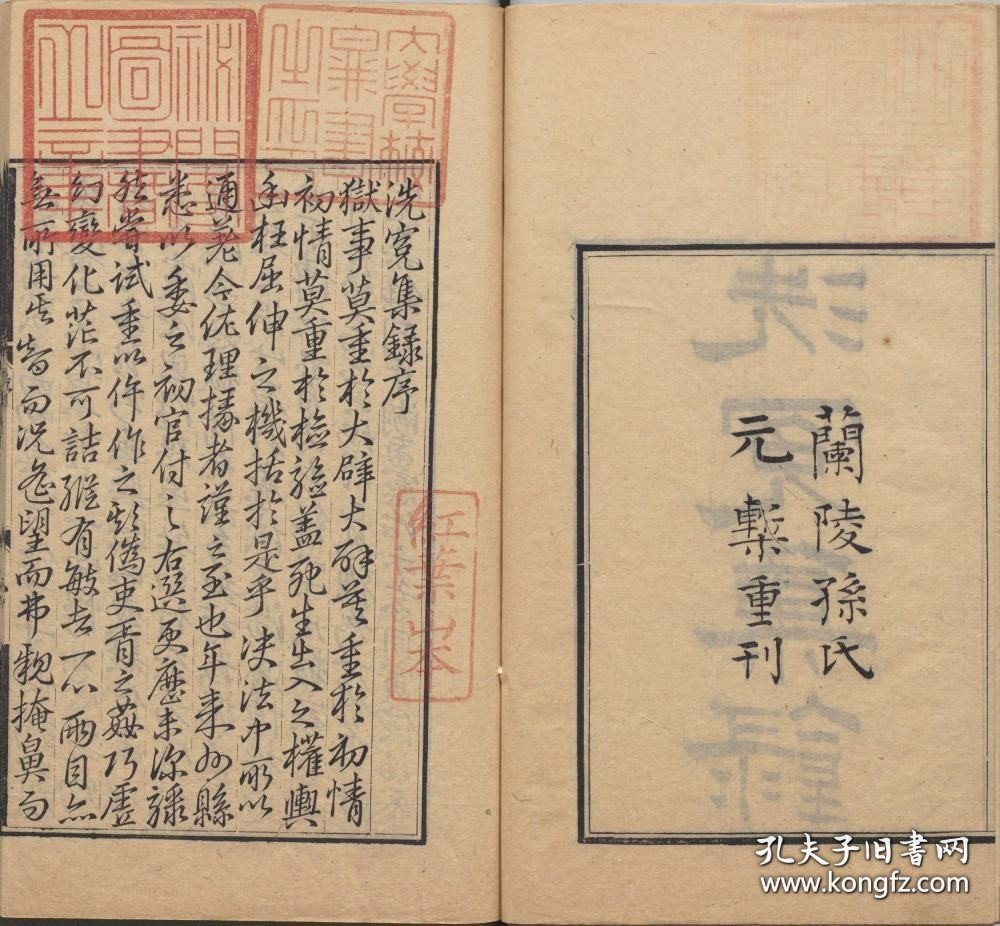 蘭陵孫氏
元槧重刊
洗冤集録序
獄事莫重於大辟大辟莫重於初情
初情莫重於檢驗蓋死生出入之權輿
幽枉屈伸之機括於是乎决法中所以
通差今佐理掾者謹之至也年来州縣
悉以委之初官付之右選更歷未深驟
然嘗試重以仵作之欺僞吏胥之姦巧虛
幻變化茫不可詰縱有敏者一心兩目亦
無所用其智而况遙望而弗親掩鼻而
紅葉山本
秘閣圖書之章
孔夫子旧书网
www.kongfz.com